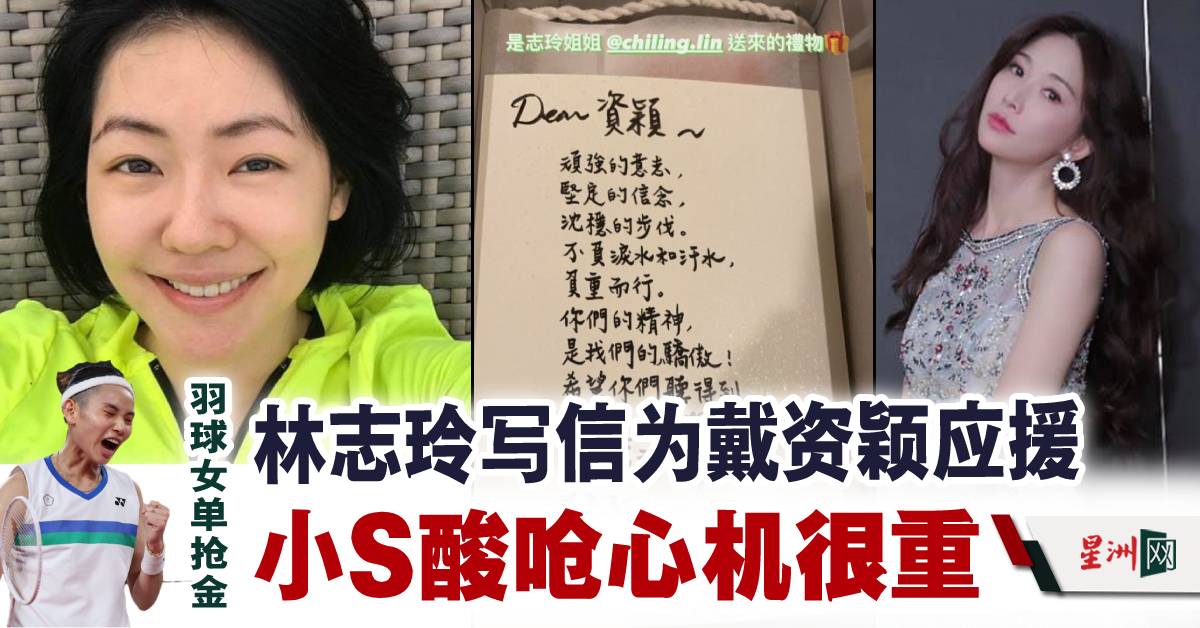 是志玲姐姐 @chiling.lin 送來的禮物🎁
Dear 資穎~
頑強的意志,
堅定的信念,
沈穩的步伐。
不負淚水和汗水,
負重而行。
你們的精神,
是我們的驕傲!
希望你們聽得到
羽球女单抢金
林志玲写信为戴资颖应援
小S酸呛心机很重
星洲网
YONEX